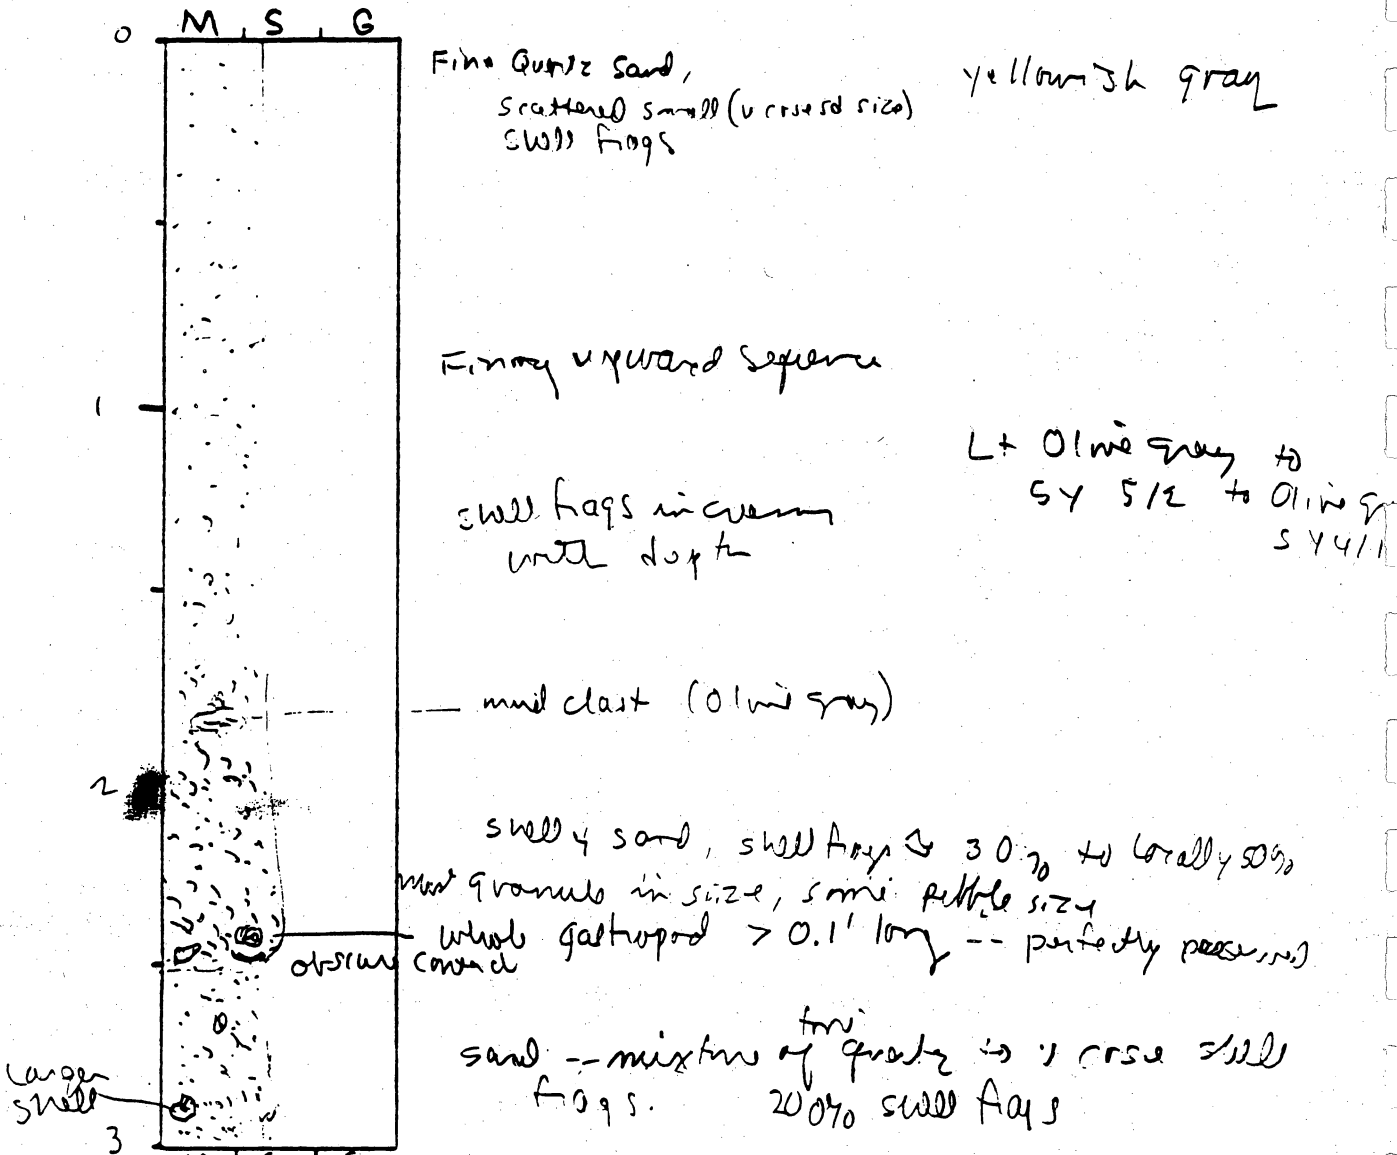 M S G
0
Fine Quartz Sand,
scattered small (v crse sd size)
shell frags
yellowish gray
Fining upward sequence
1
Lt Olive gray to
5Y 5/2 to Olive gr
5Y4/1
shell frags increasing
with depth
mud clast (Olive gray)
2
shelly sand, shell frags 30% to locally 50%
most granule in size, some pebble size
whole gastropod > 0.1' long -- perfectly preserved
obscure contact
fine
sand -- mixture of quartz to v crse shell
frags. 20% shell frags
Larger
shell
3